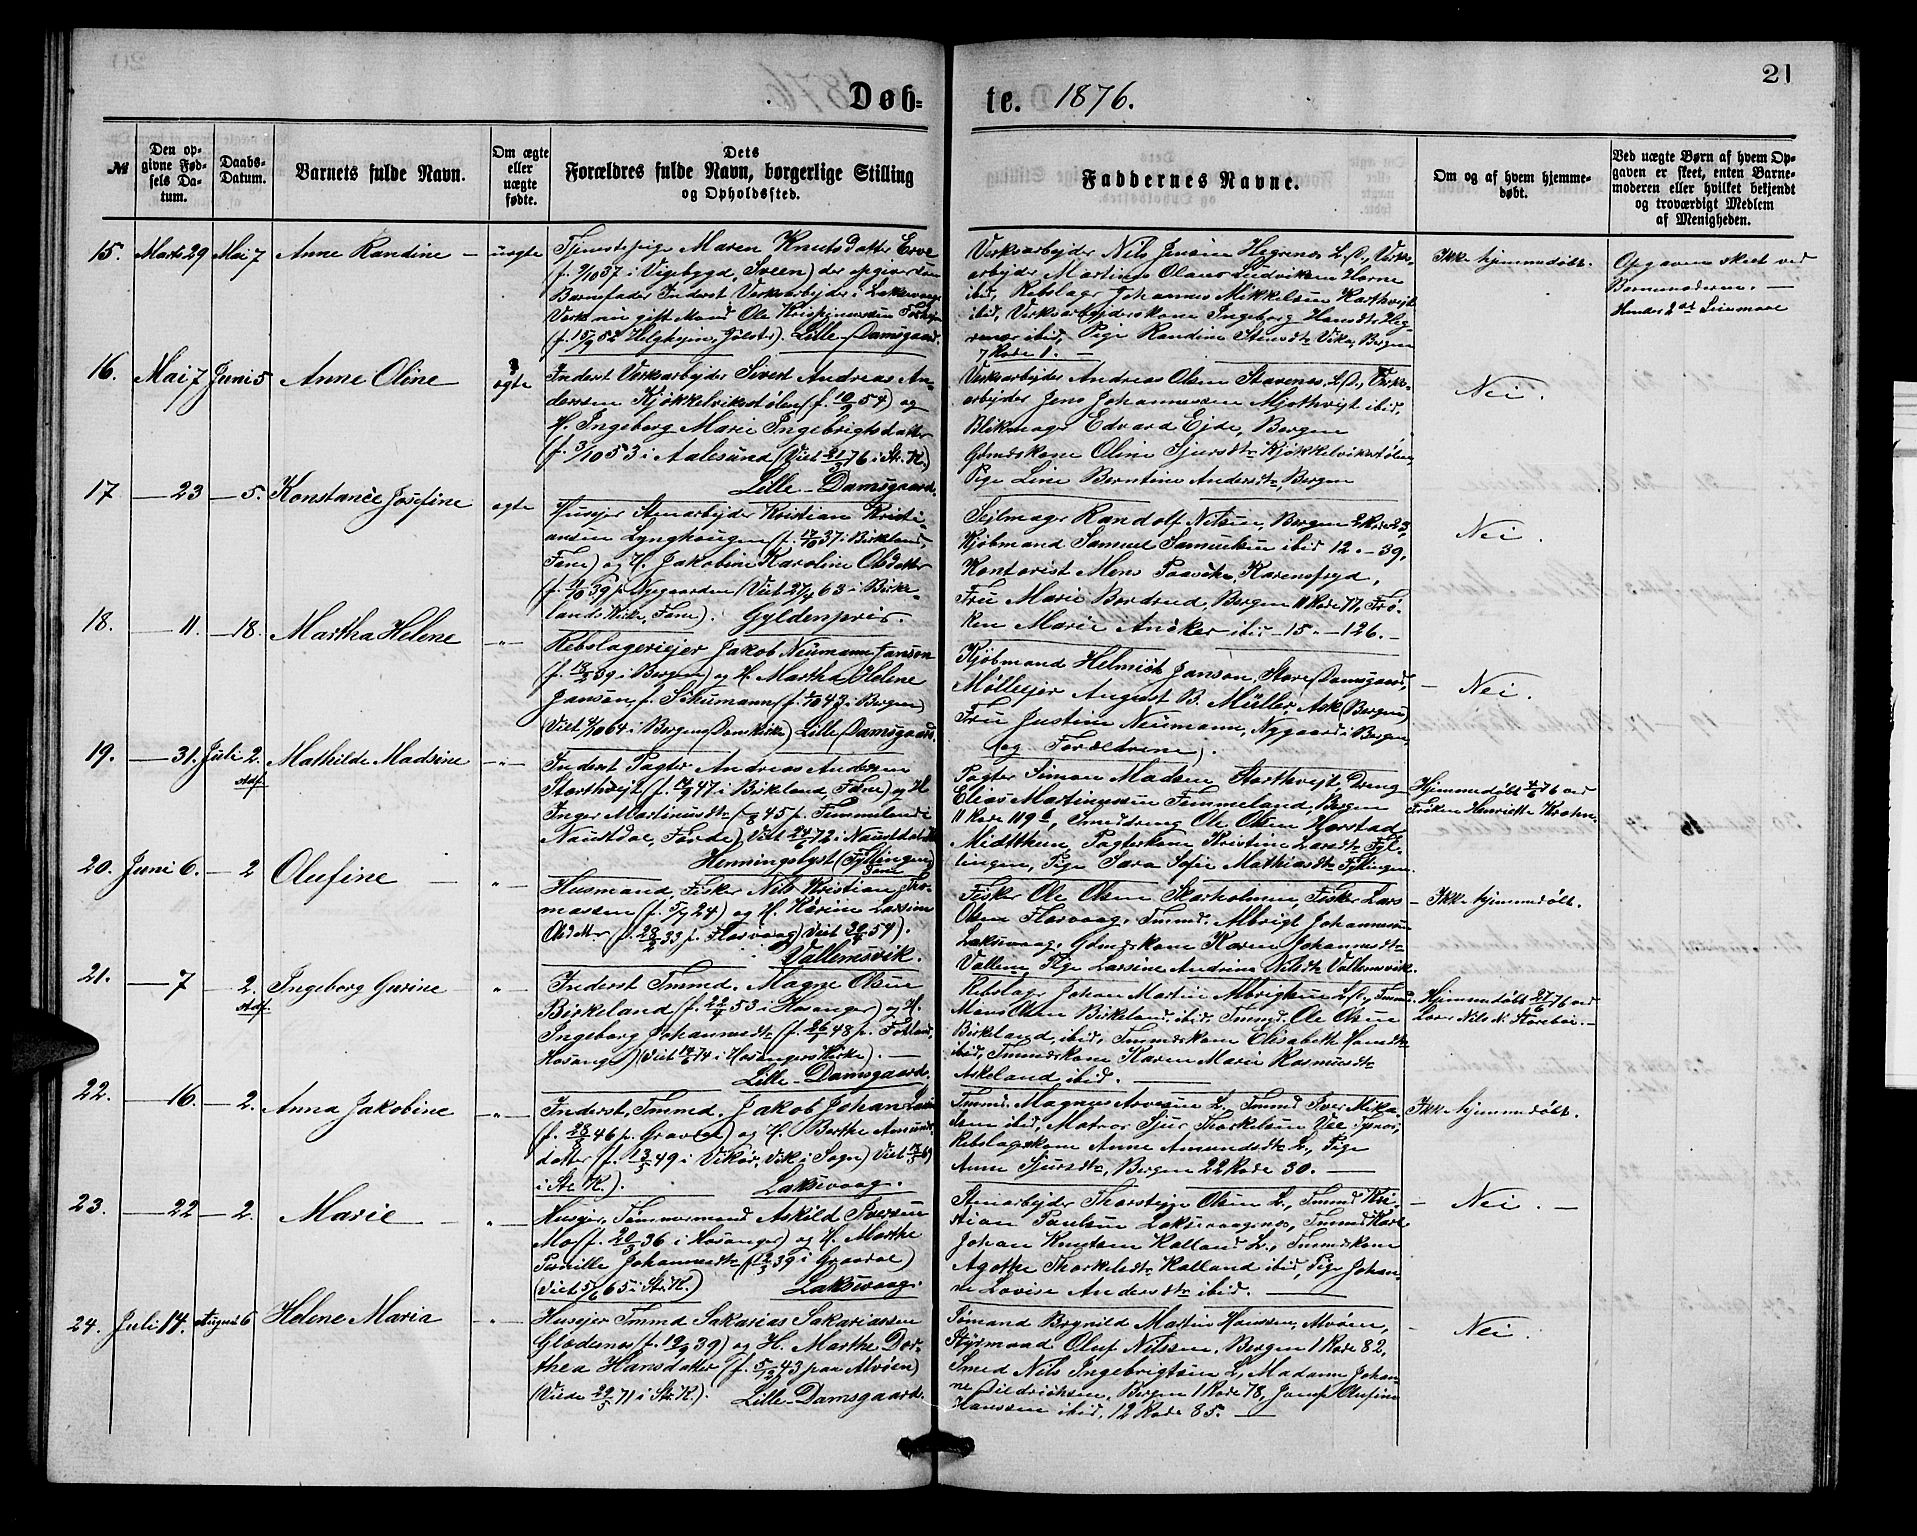 21
Døb-
te. 1876.
№
Den op-
givne Fød-
sels Da-
tum.
Daabs-
Datum.
Barnets fulde Navn.
Om ægte
eller
uægte
fødte.
Dets
Forældres fulde Navn, borgerlige Stilling
og Opholdssted.
Faddernes Navne.
Om og af hvem hjemme-
døbt.
Ved uægte Børn af hvem Op-
gaven er skeet, enten Barne-
moderen eller hvilket bekjendt
og troværdigt Medlem
af Menigheden.
15. Marts 29 Mai 7 Anne Randine uægte
Tjenestepige Maren Knutsdatter Erve
(f. 9/10 57 i Vigebygd, Sveen) der opgiver som
Barnefader Inderst Verksarbejder i Laksevaags
Verk nu gift Mand Ole
(f. 15/9 52 Jølster). Lille-Damsgaard.
Verksarbejder Nils Jensen L. D., Verks-
arbejder Martinus Olaus Ludviksen Horne
ibid, Rebslager Johannes Mikkelsen
ibid, Verksarbejderskone Ingeborg Hansdtr
ibid, Pige Randine Stensdtr Vika, Bergen
7 Rode 1.
Ikke hjemmedøbt.
Opgaven skeet ved
Barnemoderen.
Hendes 2det Leiermaal
16. Mai 7 Juni 5 Anne Oline ægte
Inderst Verksarbejder Sivert Andreas An-
derssen Kjøkkelviksstølen (f. 10/9 54) og
H. Ingeborg Marie Ingebrigtsdatter
(f. 3/10 53 i Aalesund (Viet 21/3 76 i St. K.)
Lille-Damsgaard.
Verksarbejder Andreas Olsen Stavenes L. D., Verks-
arbejder Jens Johannessen ibid,
Blikmager Edvard Eide, Bergen
Gmdskone Oline Sjursdtr Kjøkkelviksstølen,
Pige Line Berntine Andersdtr, Bergen
Nei.
17 — 23 — 5. Konstance Josefine ægte
Husejer Stenarbejder Kristian Kristi-
ansen Lynghougen (f. 17/10 37 i Birkeland,
Fane) og H. Jakobine Karoline Olsdatter
(f. 39 p. Nygaarden (Viet 27/4 63 i Birke-
lands Kirke, Fane). Gyldenpris.
Sejlmager Randolf Nilsen, Bergen 2 Rode 23,
Kjøbmand Samuel Samuelsen ibid 12 — 39,
Kontorist Mons Karensfryd,
Fru Marie Bordrud, Bergen 11 Rode 77, Frø-
ken Marie Ancker ibid — 15 — 126.
Nei.
18. — 11. — 18. Martha Helene — " —
Rebslagerieier Jakob Neumann Janson
(f. 39 i Bergen) og H. Martha Helene
Janson, f. Schumann (f. 43 i Bergen)
Viet 4/10 64 i Bergens Domkirke) Lille Damsgaard.
Kjøbmand Helmich Janson, Store Damsgaard,
Mølleejer August B. Müller, Ask (Bergen)
Fru Justine Neumann, Nygaard i Bergen,
(og Forældrene).
Nei.
19. — 31. Juli 2. Mathilde Madsine — " —
stdf.
Inderst Pagter Andreas Andersen
Storthvejt (f. 47 i Birkeland, Fane) og H.
Inger Martinusdtr (f. 45 p. Timmeland i
Naustdal, Førde) Viet 24/6 72 i Naustdal
Henningslyst (Fyllingen)
Fane
Pagter Simon Madsen, Storthvejt, Dreng
Elias Martinussen Timmeland, Bergen
11 Rode 119 a, Smeddreng Ole Olsen Horstad
Midtthun, Pagterkone Kristine Larsdtr Fyl-
lingen, Pige Sara Sofie Mathiasdtr Fyllingen.
Hjemmedøbt 76 ved
Frøken Henriette Krohn.
20. Juni 6. — 2 Olufine — " —
Husmand Fisker Nils Kristian Tho-
massen (f. 24) og H. Karine Larsine
Olsdatter (f. 28/2 33 p. Florvaag) Viet 54).
Vallemsvik.
Fisker Ole Olsen Skarholmen, Fisker Lars
Olsen Florvaag, Tmmd. Albrigt Johannessen
Laksevaag, Gdmdskone Karen Johannesdtr
Vallem, Pige Larsine Andrine Nilsdtr Vallemsvik.
Ikke hjemmedøbt.
21. — 7 — 2. Ingeborg Gurine — " —
stdf.
Inderst Tmmd. Magne Olsen
Birkeland (f. 22/4 53 i Hosanger) og H.
Ingeborg Johannesdtr (f. 26/6 48 p. Fotland,
Hosanger) (Viet 74 i Hosangers Kirke).
Lille-Damsgaard.
Rebslager Johan Martin Albrigtsen L. D., Tmmd.
Mons Olsen Birkeland, ibid, Tmmd. Ole Olsen
Birkeland, ibid, Tmmdskone Elisabeth Hansdtr
ibid, Tmmdskone Karen Marie Rasmusdtr
Askeland ibid.
Hjemmedøbt 21/6 76 ved
Lærer Nils N. Storebø.
22. — 16. — 2. Anna Jakobine — " —
Inderst, Tmmd. Jakob Johan
(f. 28/2 46 p. Gravdal) og H. Berthe Amunds-
datter (f. 13/5 49 i Vikør, Vik i Sogn) Viet
i St. K.). Laksevaag.
Tmmd. Magnus Arvesen L., Tmmd Iver Mika-
lsen ibid, Matros Sjur Thorkelsen Tysnes,
Rebslagerkone Anne Amundsdtr L., Pige
Anne Sjursdtr, Bergen 22 Rode 30.
Ikke hjemmedøbt.
23. — 22 — 2. Marie — " —
Husejer, Tømmermand Askild Iversen
Mo (f. 20/3 36 i Hosanger) og H. Marthe
Pernille Johannesdtr (f. 12/3 39 i Gravdal)
(Viet 5/6 65 i St. K.) Laksevaag.
Stenarbejder Thorstein Olsen L., Tmmd Kri-
stian Paulsen Laksevaagnes, Tmmd Karl
Johan Knutsen Kalland L., Tmmdskone
Agothe Thorkelsdtr Kalland ibid, Pige Johan-
ne Lovise Andersdtr ibid.
Nei.
24. Juli 14. August 6 Helene Maria — " —
Husejer Tmmd Sakarias Sakariassen
Gladenes (f. 19/9 39) og H. Marthe Dor-
thea Hansdatter (f. 5/12 43 paa Alvøen)
(Viede 29/5 71 i St. K.). Lille-Damsgaard.
Sømand Brynild Martin Hanssen, Alvøen,
Styrmand Oluf Nilssen, Bergen 1 Rode 82,
Smed Nils Ingebrigtsen L, Madam Johan-
ne Didriksen, Bergen 1 Rode 78, Jomf Olufine
Hanssen ibid, 12 Rode 85.
Nei.